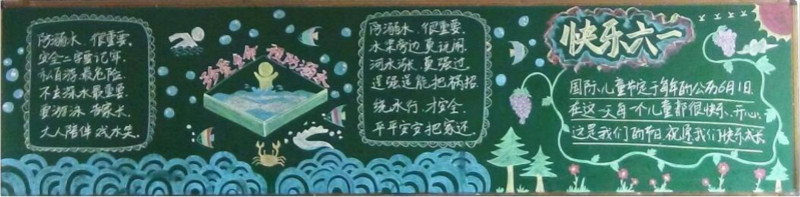 防溺水,很重要,
安全二字要记牢.
私自游,最危险,
不去深水最重要.
要游泳,告家长,
大人陪伴戏水笑.
珍爱生命 预防溺水
防溺水,很重要.
水果旁边莫玩闹.
河水涨,莫强过,
逞强逞能把祸招.
绕水行,才安全.
平平安安把家还
快乐六一
国际儿童节定于每年的公历6月1日.
在这一天每一个儿童都很快乐、开心.
这是我们的节日 祝愿我们快乐成长.